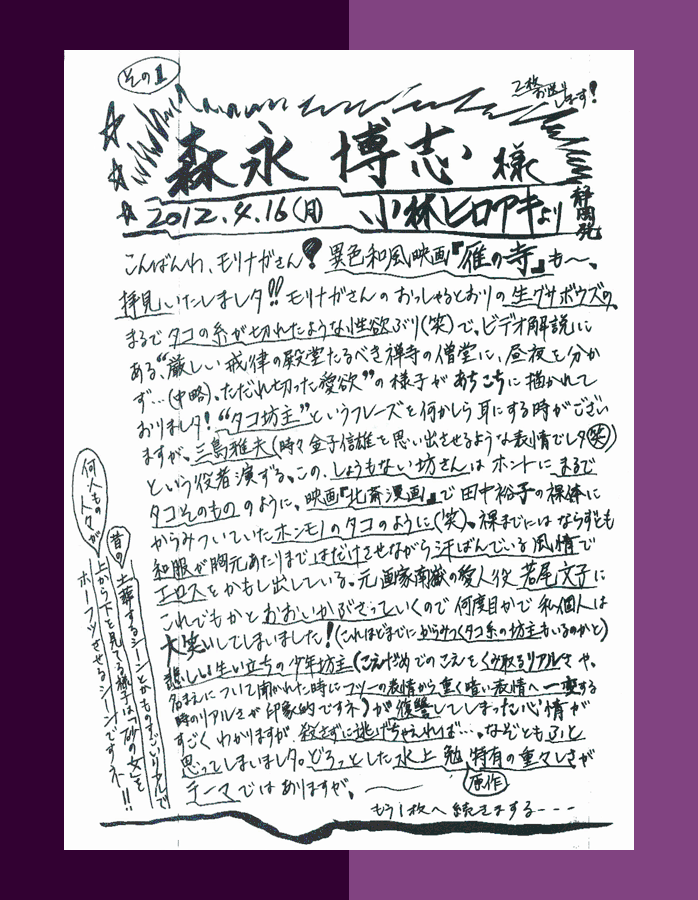 その1
2枚お送りします!
森永 博志 様
2012.4.16(月) 小林ヒロアキより
静岡発
こんばんわ、モリナガさん! 異色和風映画『雁の寺』も〜、
拝見いたしましタ!! モリナガさんのおっしゃるとおりの生グサボウズの、
まるでタコの糸が切れたような性欲ぶり(笑)で、ビデオ解説に
ある、“厳しい戒律の殿堂たるべき禅寺の僧堂に、昼夜を分か
ず…(中略)、ただれ切った愛欲”の様子があちこちに描かれて
おりましタ! “タコ坊主”というフレーズを何かしら耳にする時がござい
ますが、三島雅夫(時々金子信雄を思い出させるような表情でしタ(笑))
という役者演ずる、この、しょうもない坊さんはホントにまるで
タコそのもののように、映画『北斎漫画』で田中裕子の裸体に
からみついていたホンモノのタコのように(笑)、裸までにはならずとも
和服が胸元あたりまではだけさせながら汗ばんでいる風情で
エロスをかもし出している。元画家南嶽の愛人役 若尾文子に
これでもかとおおいかぶさっていくので何度目かで私個人は
大笑いしてしまいました! (これほどまでにからみつくタコ糸の坊主もいるのかと)
悲しい生い立ちの少年坊主(こえだめでのこえをくみ取るリアルさや、
名まえについて聞かれた時にフツーの表情から重く暗い表情へ一変する
時のリアルさが印象的ですネ)が復讐してしまった心情が
すごくわかりますが 殺さずに逃げちゃえれば…、なぞともふと
思ってしまいましタ。どろっとした水上 勉 特有の重々しさが
原作
テーマではありますが、
もう1枚へ続きまする---
何人もの人々が
昔の
土葬するシーンとかものすごいリアルで
上から下を見てる様子は『砂の女』を
ホーフツさせるシーンですネ!!